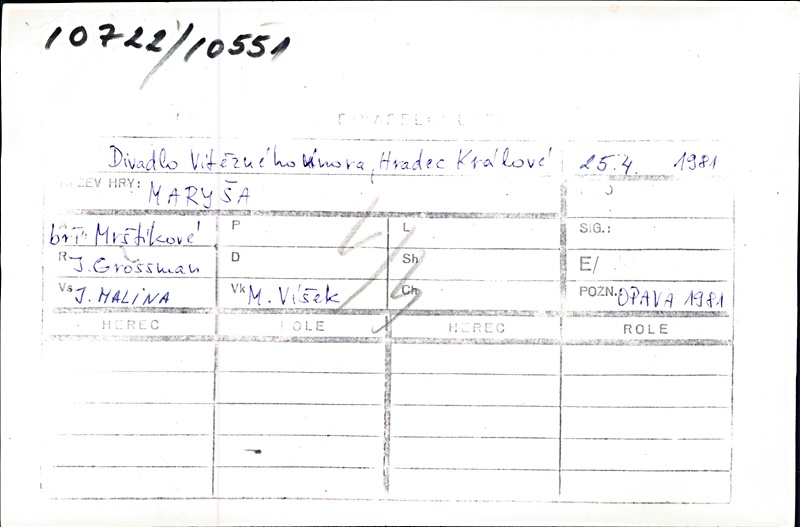 10722/10551
Divadlo Vítězného února, Hradec Králové 25.4. 1981
NÁZEV HRY: MARYŠA
bří Mrštíkové P L SIG.:
R J. Grossman D Sh E/
Vs J. MALINA Vk M. Víšek Ch POZN. OPAVA 1981
HEREC ROLE HEREC ROLE